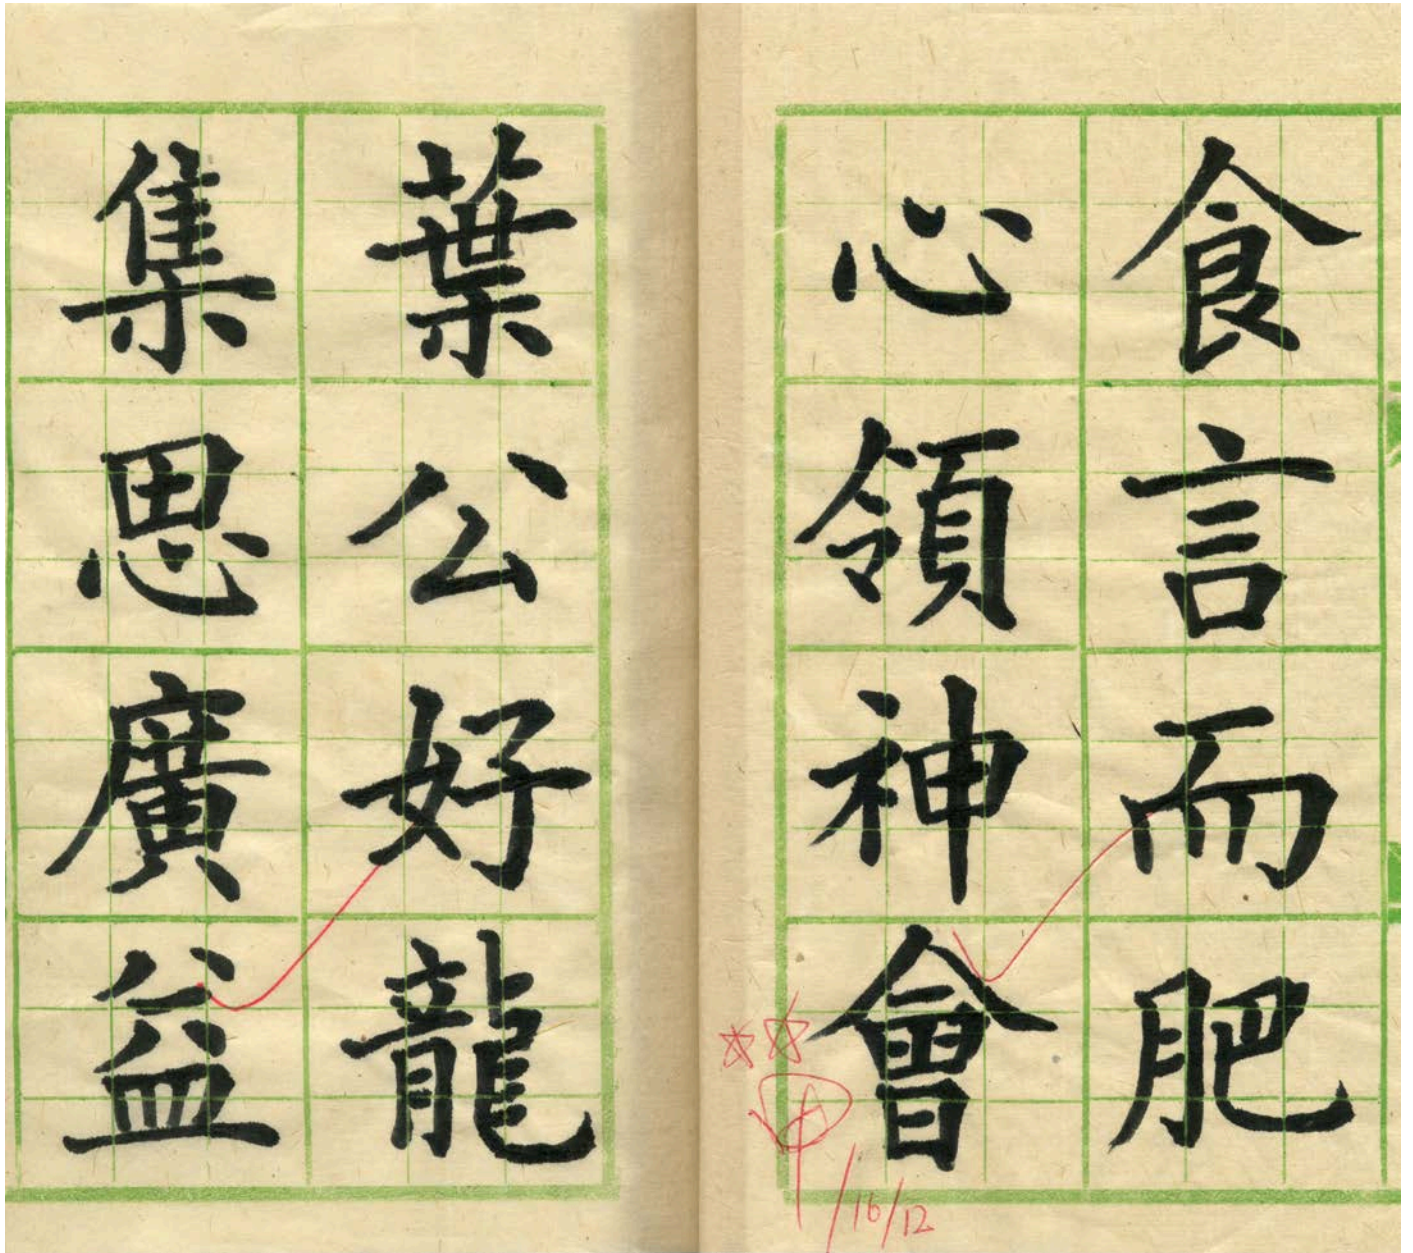 食言而肥
心領神會
葉公好龍
集思廣益
甲
16/12